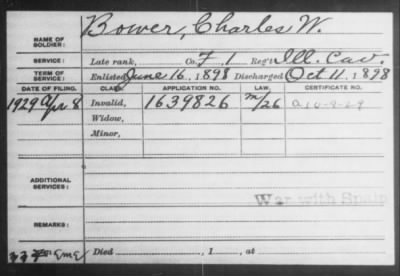 NAME OF SOLDIER: Bower, Charles W.
SERVICE: Late rank, Co. F, 1 Reg't Ill. Cav.
TERM OF SERVICE: Enlisted June 16, 1898 Discharged Oct 11, 1898
DATE OF FILING. CLASS. APPLICATION NO. LAW. CERTIFICATE NO.
1929 Apr 8 Invalid, 1639826 m/26 a10-9-29
Widow,
Minor,
ADDITIONAL SERVICES:
War with Spain
REMARKS:
Died , 1 , at